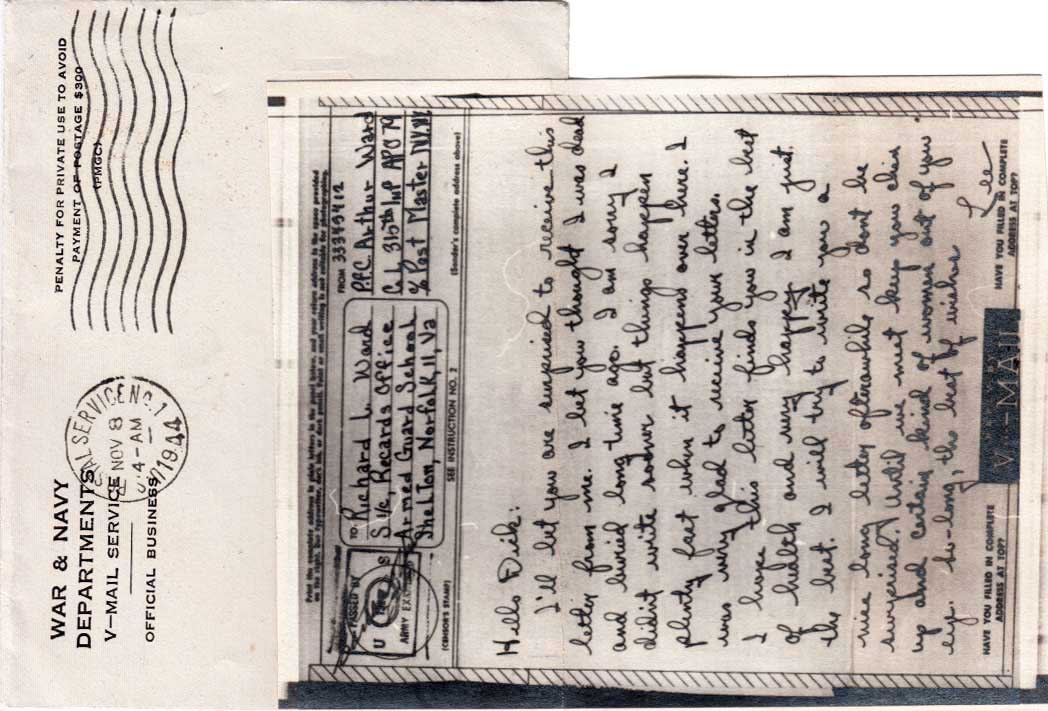 WAR & NAVY
DEPARTMENTS
V-MAIL SERVICE
OFFICIAL BUSINESS
SERVICE NO. 1
NOV 8
4-AM
1944
PENALTY FOR PRIVATE USE TO AVOID
PAYMENT OF POSTAGE $300
(PMGC)
Print the complete address in plain letters in the panel below, and your return address in the space provided
PASSED BY
U S
ARMY EXAMINER
(CENSOR'S STAMP)
TO: Richard L. Ward
S 1/c, Records Office
Armed Guard School
Shelton, Norfolk, 11, Va
SEE INSTRUCTION NO. 2
FROM 33349412
P.F.C. Arthur Ward
315th Inf APO 79
% Post Master N.Y. N.Y.
(Sender's complete address above)
Hello Dick:
I'll bet you are surprised to receive this
letter from me. I bet you thought I was dead
and buried long time ago. I am sorry I
didn't write sooner but things happen
plenty fast when it happens over here. I
was very glad to receive your letters.
I hope this letter finds you in the best
of health and very happy I am just
the best. I will try to write you a
nice long letter afterawhile so don't be
surprised. Until we meet keep you chin
up and certain kind of women out of you
so-long, the best of wishes
Lee
HAVE YOU FILLED IN COMPLETE
ADDRESS AT TOP?
V-MAIL
HAVE YOU FILLED IN COMPLETE
ADDRESS AT TOP?